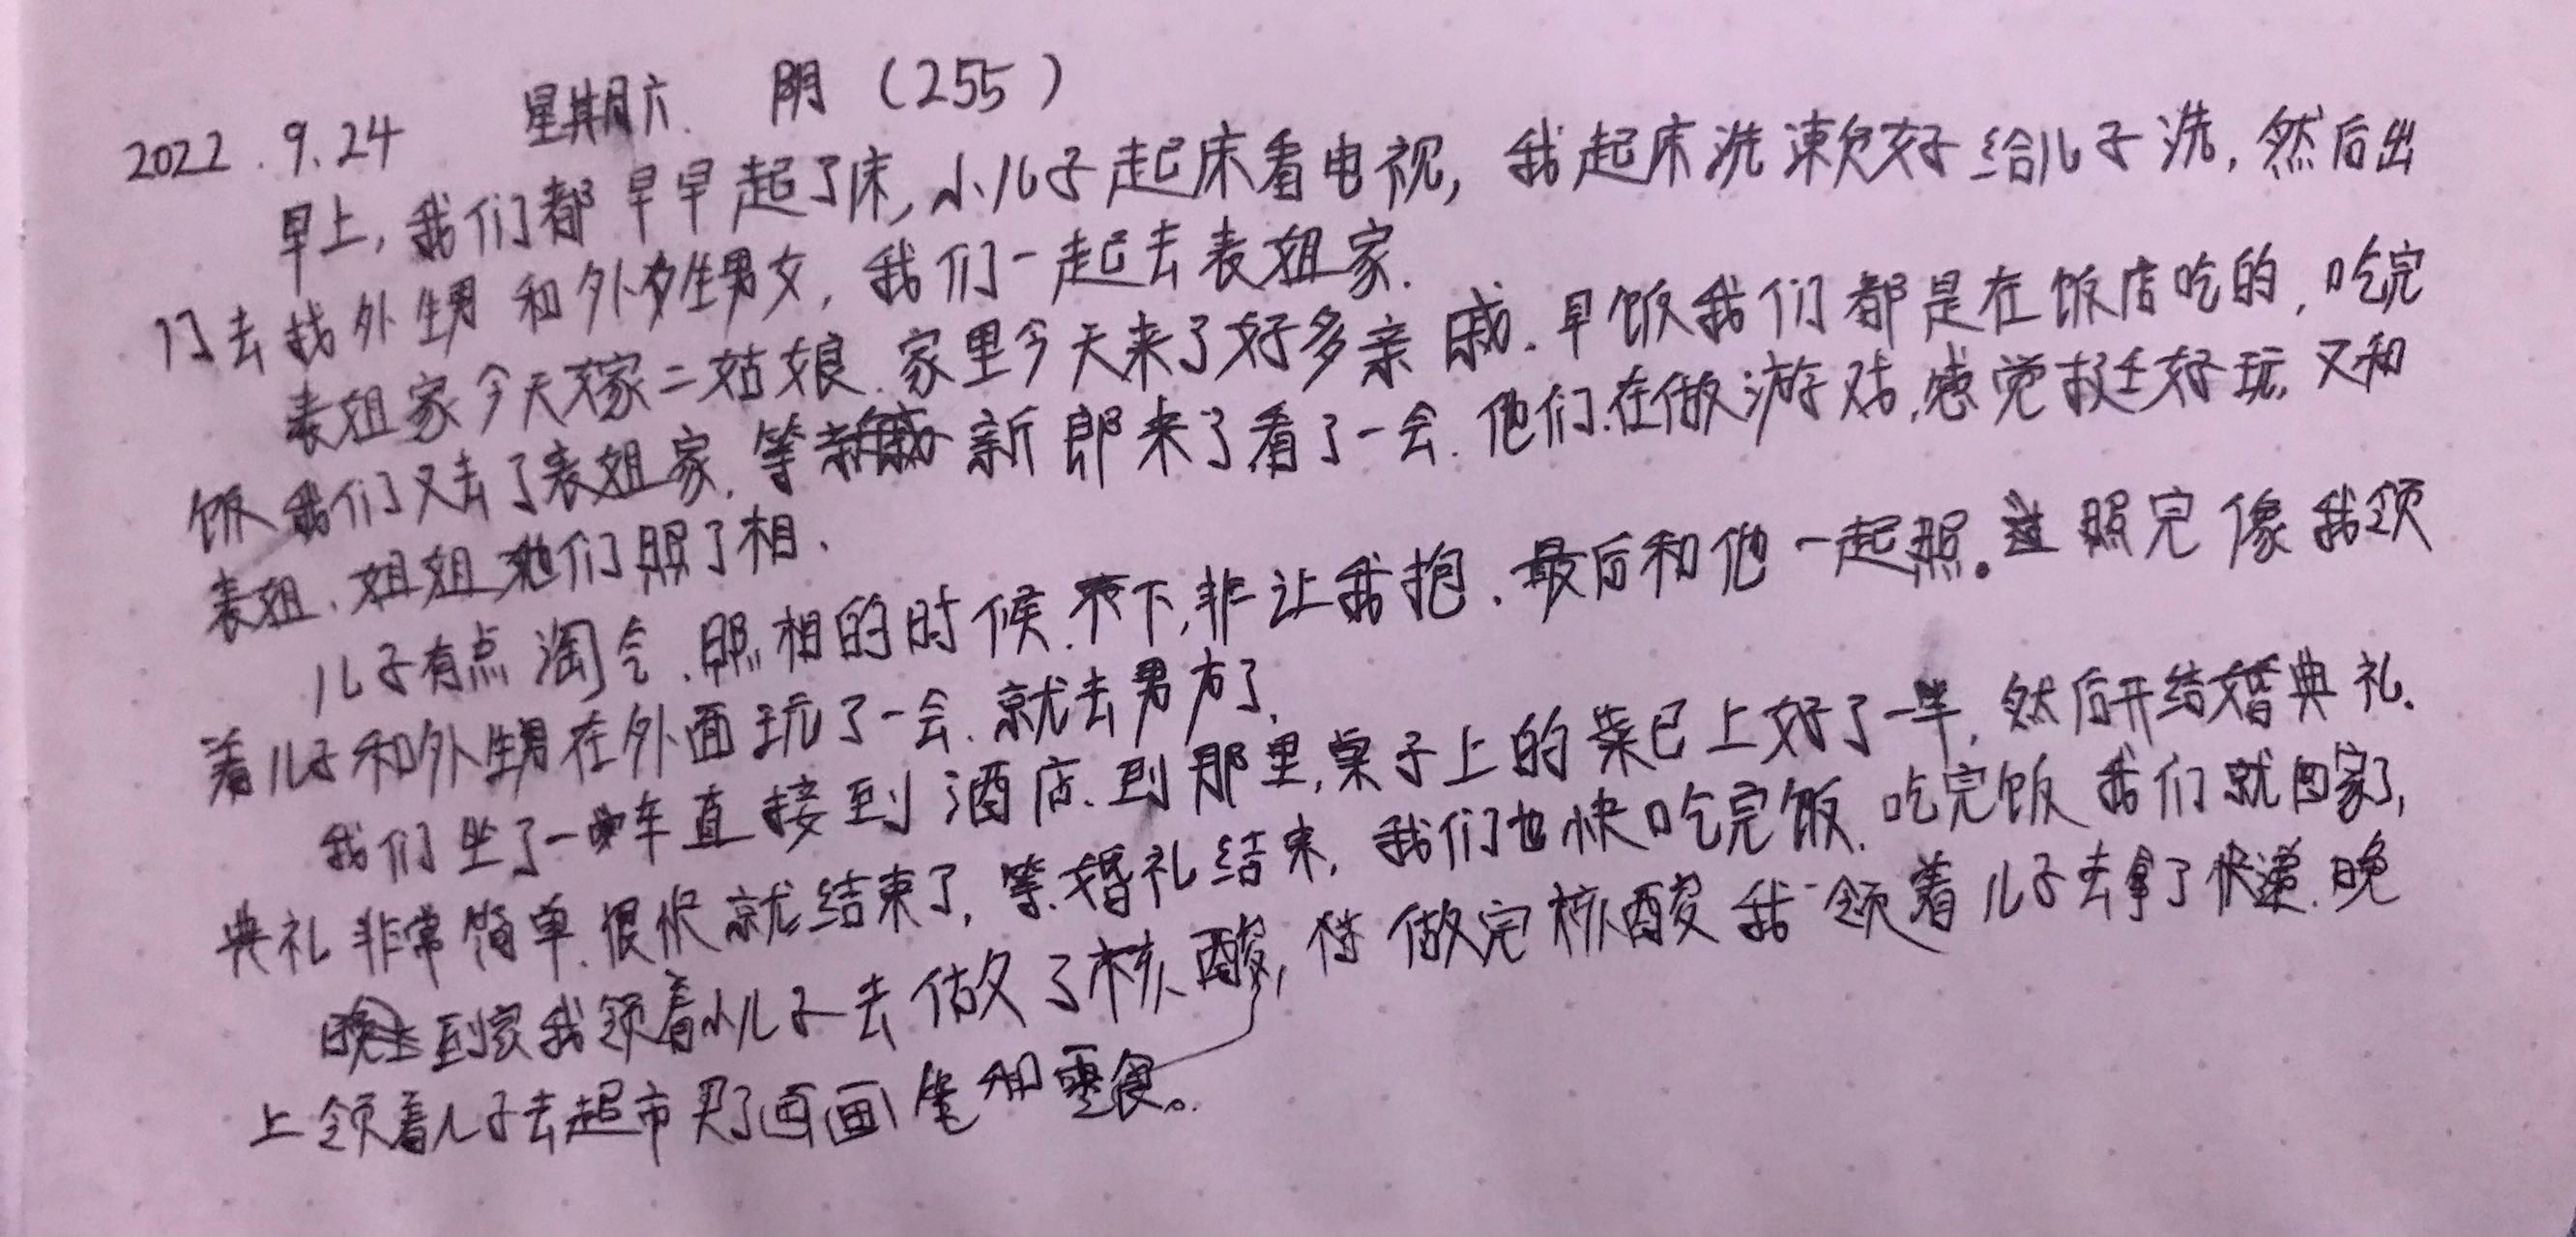 2022.9.24 星期六. 阴 (255)
早上,我们都早早起了床,小儿子起床看电视,我起床洗漱好给儿子洗,然后出
门去找外甥和外甥女,我们一起去表姐家.
表姐家今天嫁二姑娘.家里今天来了好多亲戚.早饭我们都是在饭店吃的,吃完
饭我们又去了表姐家,等新郎来了看了一会.他们在做游戏,感觉挺好玩,又和
表姐、姐姐她们照了相.
儿子有点淘气.照相的时候.不下,非让我抱.最后和他一起照。照完像我领
着儿子和外甥在外面玩了一会.就去男方了.
我们坐了一车直接到酒店.到那里,桌子上的菜已上好了一半.然后开结婚典礼.
典礼非常简单.很快就结束了,等婚礼结束,我们也快吃完饭.吃完饭我们就回家了,
到家我领着小儿子去做了核酸,做完核酸我领着儿子去拿了快递.晚
上领着儿子去超市买了画画笔和零食。